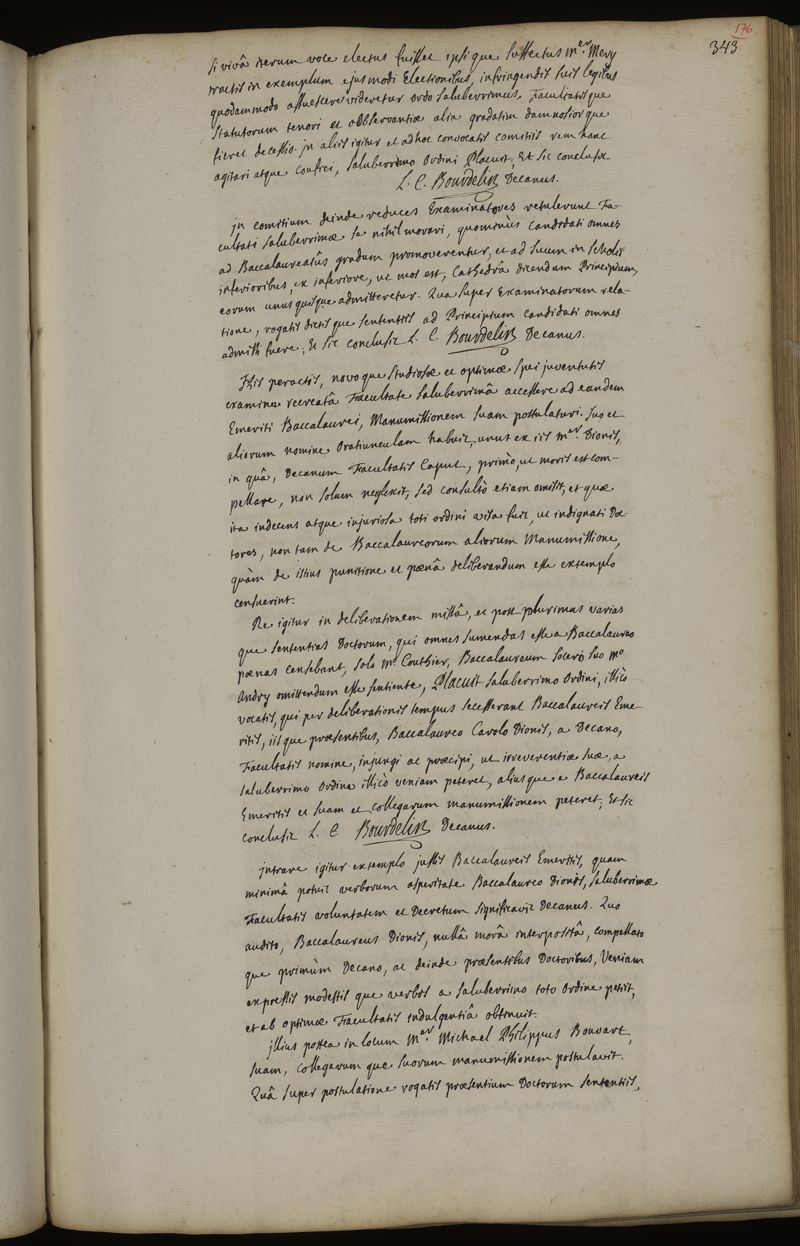 176
343
si vivâ iterum voce electus fuisset ipsi que suffectus Mer. Mery
tractis in exemplum ejusmodi Electionibus, infringendis suis legibus
quodammodo assuescere videretur ordo saluberrimus, Facultatis que
statutorum tenori et observantiæ alia gradatim damnosior que
fieret decessio. jn aliis igitur et ad hoc convocatis comitiis rem hanc
agitari atque confici, saluberrimo Ordini Placuit, Et sic conclusit
L. C. Bourdelin Decanus.
jn comitium deinde reduces Examinatores retulerunt Fa-
cultati saluberrimæ se nihil morari, quominùs candidati omnes
ad Baccalaureatûs gradum promoverentur, et ad suum in scholis
inferioribus, ex inferiore, ut mos est, Cathedrâ dicendum Principium,
eorum unusquisque admitteretur. Quâ super Examinatorum rela-
tione, rogatis dictis que sententiis ad Principium candidati omnes
admissi fuere; Et sic conclusit L. C. Bourdelin Decanus.
His peractis, novo que studiosæ et optimæ spei juventutis
examine recreatâ Facultate saluberrimâ accessere ad eandem
Emeriti Baccalaurei, Manumissionem suam postulaturi. suo et
aliorum nomine Oratiunculam habuit, unus ex iis Mer. Dionis,
in quâ, Decanum Facultatis Caput, primò, ut moris est com-
pellare, non solum neglexit, sed consultò etiam omisit, et quæ
ita indecens atque injuriosa toti ordini visa fuit, ut indignati Do-
tores, non tam de Baccalaureorum aliorum Manumissione,
quàm de istius punitione et pœnâ deliberandum esse extemplo
censuerint.
Re igitur in deliberationem missâ, et post plurimas varias
que sententias Doctorum, qui omnes sumendas esse a Baccalaureo
pœnas censebant, solo Mo. Couthier, Baccalaureum socero suo Mo
Andry omittendum esse sentiente, Placuit saluberrimo Ordini, illicò
vocatis, qui per deliberationis tempus secesserant Baccalaureis Eme-
ritis, iis que præsentibus, Baccalaureo Carolo Dionis, a Decano,
Facultatis nomine, injungi ac præcipi, ut irreverentiæ suæ, a
saluberrimo Ordine illicò veniam peteret, alius que e Baccalaureis
Emeritis et suam et collegarum manumissionem peteret; Et sic
conclusit L. C Bourdelin Decanus.
jntrare igitur extemplo jussis Baccalaureis Emeritis, quam
minimâ potuit verborum asperitate Baccalaureo Dionis, saluberrimæ
Facultatis voluntatem et Decretum significavit Decanus. Quo
audito, Baccalaureus Dionis, nullâ morâ interpositâ, compellato
que primùm Decano, ac deinde præsentibus Doctoribus, Veniam
expressis modestis que verbis a saluberrimo toto Ordine petiit,
et ab optimæ Facultatis indulgentiâ obtinuit.
jllius postea in locum Mer. Michael Philippus Bouvart,
suam, collegarum que suorum manumissionem postulavit.
Quâ super postulatione rogatis præsentium Doctorum sententiis,